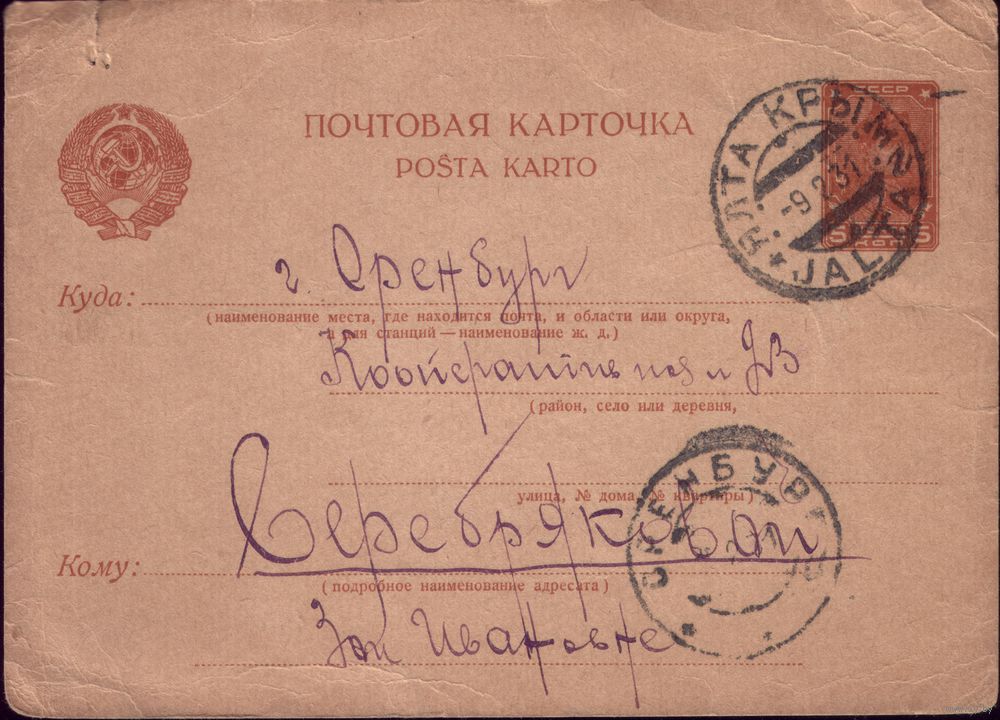 ПОЧТОВАЯ КАРТОЧКА
POŠTA KARTO
СССР
ЯЛТА КРЫМ
-9 2 31
JALTA
5 КОП 5
Куда: г. Оренбург
(наименование места, где находится почта, и области или округа,
а для станций — наименование ж. д.)
Кооперативная
(район, село или деревня,
улица, № дома, № квартиры)
ОРЕНБУРГ
Кому: Серебряковой
(подробное наименование адресата)
Ивановне